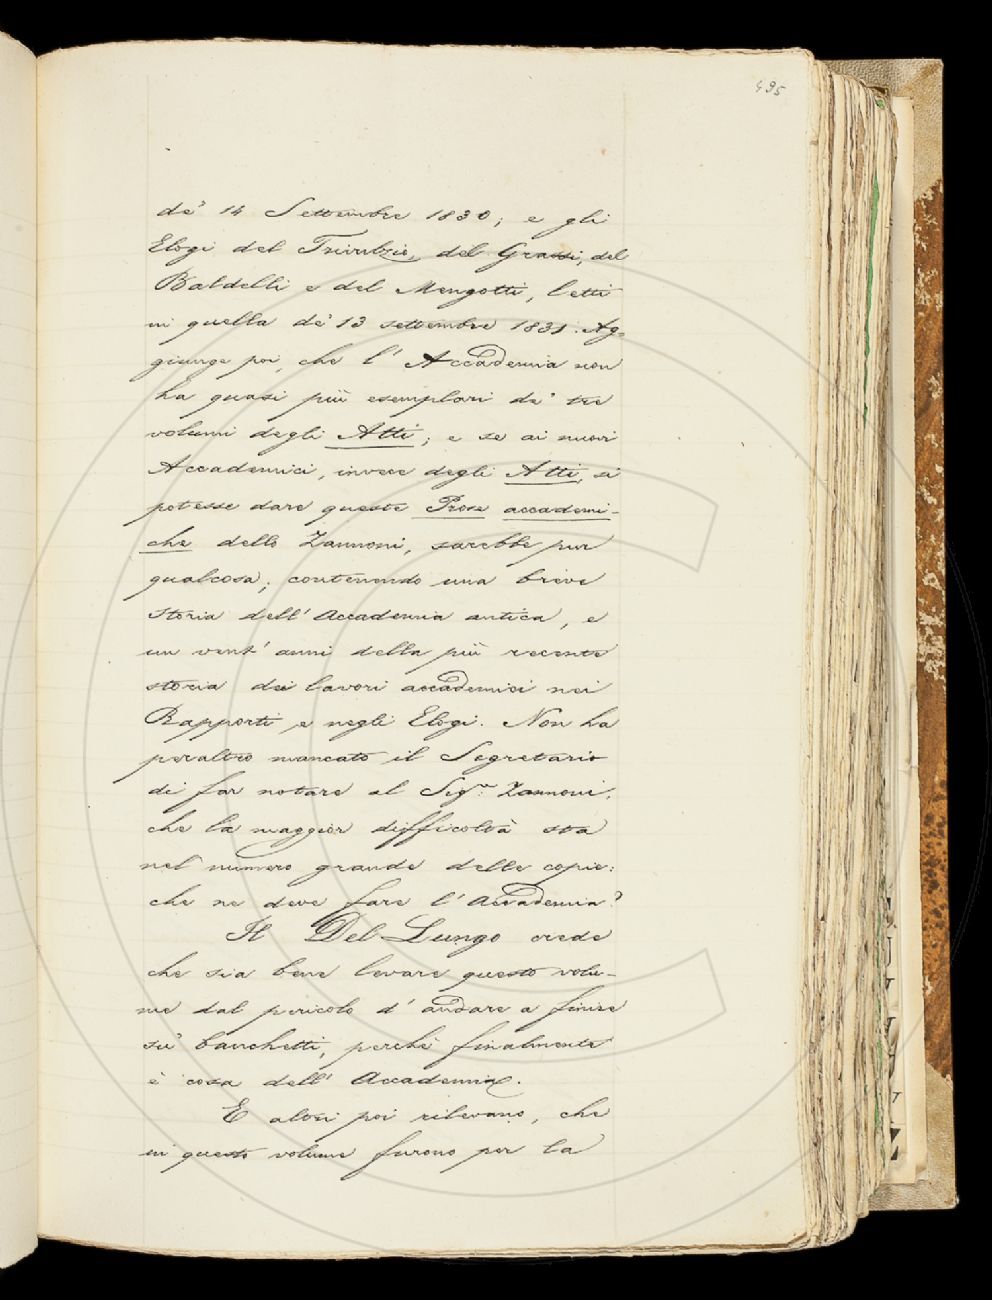 495
de' 14 Settembre 1830; e gli
Elogi del Trivulzio, del Grassi, del
Baldelli e del Mengotti, letti
in quella de' 13 settembre 1831. Ag=
giunge poi, che l' Accademia non
ha quasi più esemplari de' tre
volumi degli Atti; e se ai nuovi
Accademici, invece degli Atti, si
potesse dare queste Prose accademi-
che dello Zannoni, sarebbe pur
qualcosa; contenendo una breve
storia dell' Accademia antica, e
un vent' anni della più recente
storia dei lavori accademici nei
Rapporti e negli Elogi. Non ha
peraltro mancato il Segretario
di far notare al Sig.r Zannoni,
che la maggior difficoltà sta
nel numero grande delle copie:
che ne deve fare l' Accademia?
Il Del Lungo crede
che sia bene levare questo volu-
me dal pericolo d' andare a finire
su' banchetti, perchè finalmente
è cosa dell' Accademia.
E altri poi rilevano, che
in questo volume furono per la